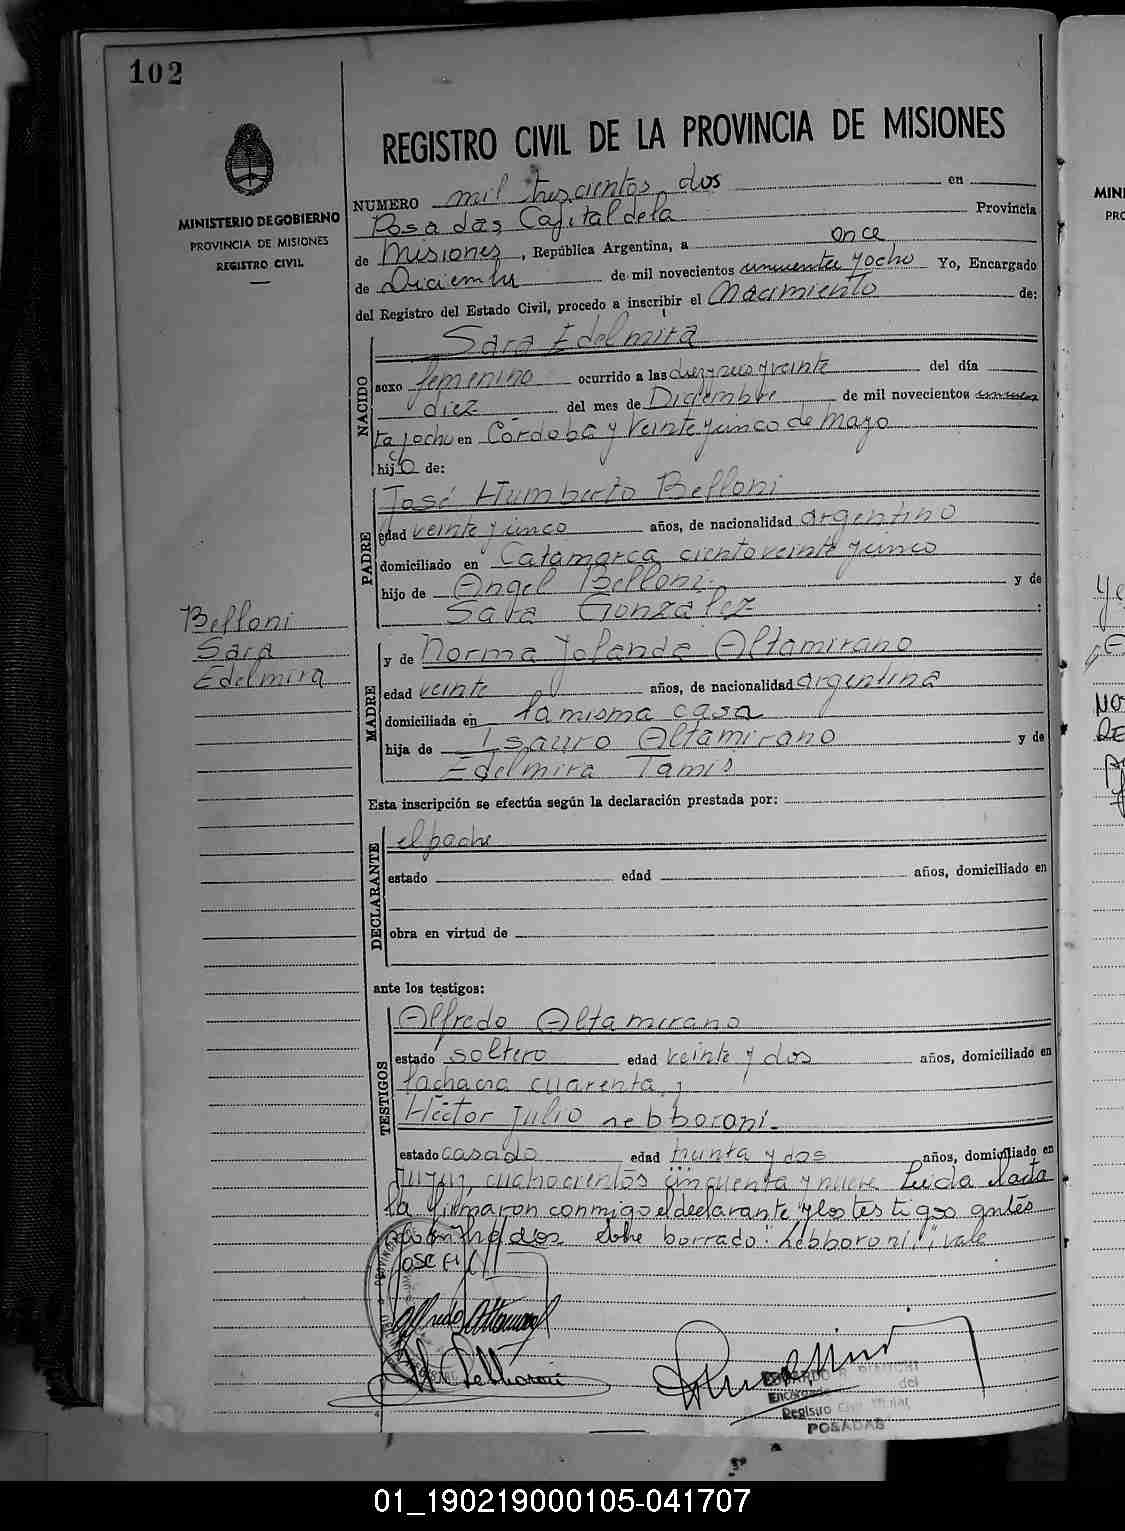 102
REGISTRO CIVIL DE LA PROVINCIA DE MISIONES
MINISTERIO DE GOBIERNO
PROVINCIA DE MISIONES
REGISTRO CIVIL
NUMERO mil trescientos dos en
Posadas Capital de la Provincia
de Misiones, República Argentina, a once
de Diciembre de mil novecientos cincuenta y ocho Yo, Encargado
del Registro del Estado Civil, procedo a inscribir el Nacimiento de:
NACIDO
Sara Edelmira
sexo femenino ocurrido a las diez y seis y veinte del día
diez del mes de Diciembre de mil novecientos cincuen
ta y ocho en Córdoba y Veinte y cinco de Mayo
hijo de:
PADRE
José Humberto Belloni
edad veinte y cinco años, de nacionalidad argentino
domiciliado en Catamarca ciento veinte y cinco
hijo de Angel Belloni y de
Sara Gonzalez :
Belloni
Sara
Edelmira
MADRE
y de Norma Yolanda Altamirano
edad veinte años, de nacionalidad argentina
domiciliada en la misma casa
hija de Isauro Altamirano y de
Edelmira Tamis
Esta inscripción se efectúa según la declaración prestada por:
DECLARANTE
el padre
estado edad años, domiciliado en
obra en virtud de
ante los testigos:
TESTIGOS
Alfredo Altamirano
estado soltero edad veinte y dos años, domiciliado en
la chacra cuarenta y
Héctor Julio Nebboroni.
estado casado edad treinta y dos años, domiciliado en
Jujuy cuatrocientos cincuenta y nueve Leida el acta
la firmaron conmigo el declarante y los testigos antes
nombrados. Sobre borrado: "nebboroni", vale
José H
Alfredo Altamirano
Encargado del
Registro Civil
POSADAS
01_190219000105-041707